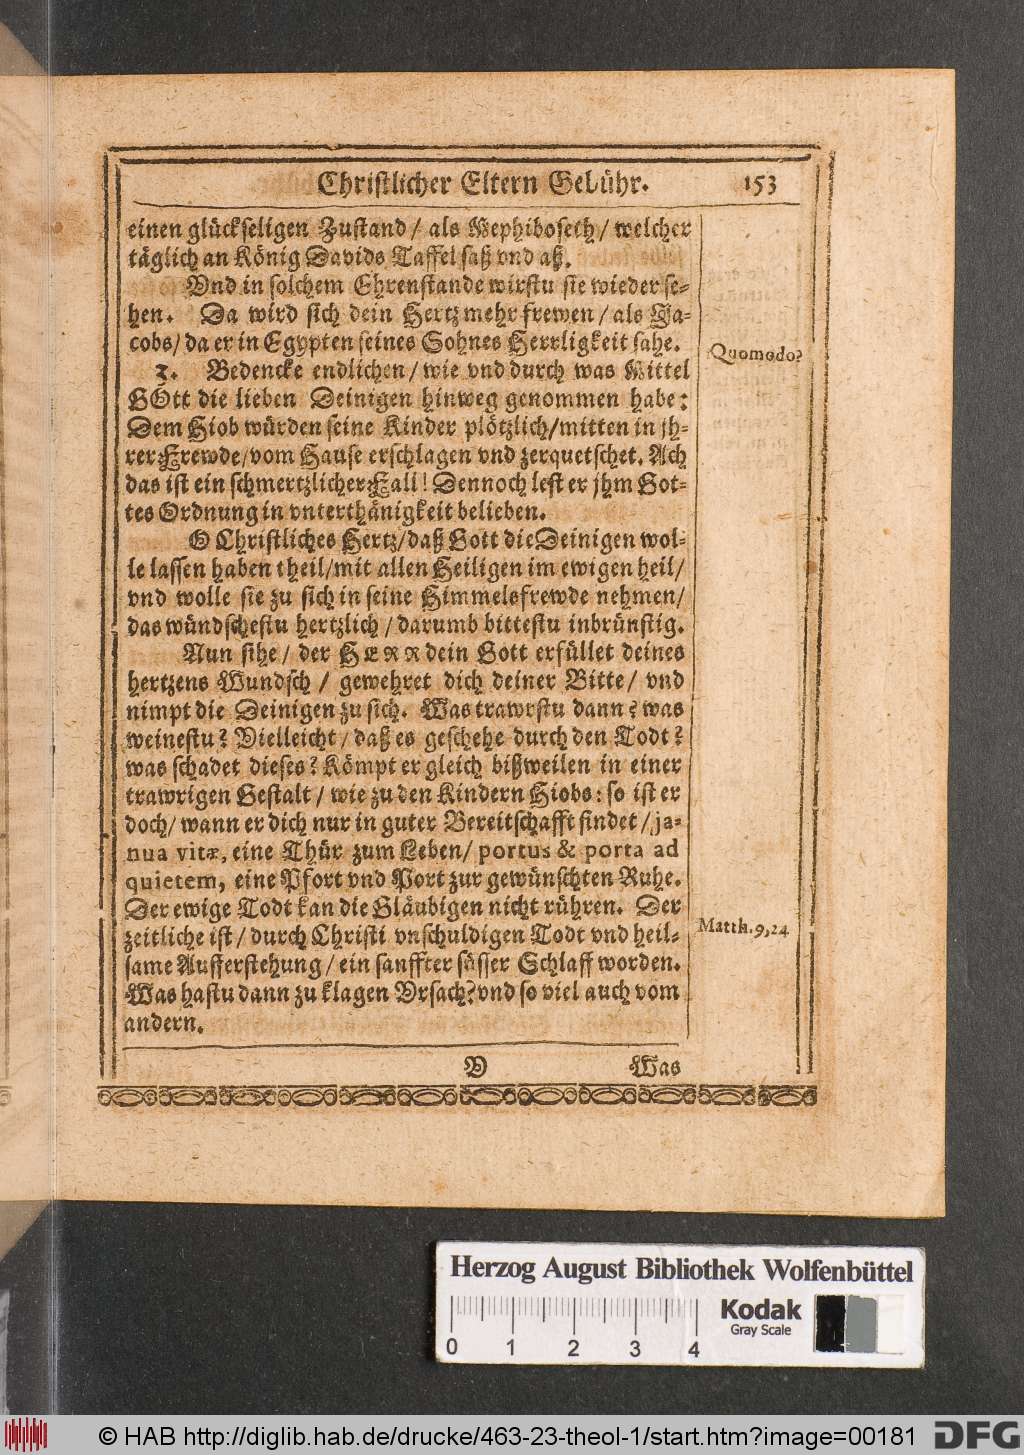 Christlicher Eltern Gebühr. 153
einen glückseligen Zustand / als Mephiboseth / welcher
täglich an König Davids Taffel saß vnd aß.
Vnd in solchem Ehrenstande wirstu sie wieder se-
hen. Da wird sich dein Hertz mehr frewen / als Ja-
cobs / da er in Egypten seines Sohnes Herrligkeit sahe.
Quomodo?
2. Bedencke endlichen / wie vnd durch was Mittel
GOtt die lieben Deinigen hinweg genommen habe:
Dem Hiob würden seine Kinder plötzlich / mitten in jh-
rer Frewde / vom Hause erschlagen vnd zerquetschet. Ach
das ist ein schmertzlicher Fall! Dennoch lest er jhm Got-
tes Ordnung in vnterthänigkeit belieben.
O Christliches Hertz / daß Gott die Deinigen wol-
le lassen haben theil / mit allen Heiligen im ewigen heil /
vnd wolle sie zu sich in seine Himmelsfrewde nehmen /
das wündschestu hertzlich / darumb bittestu inbrünstig.
Nun sihe / der HERR dein Gott erfüllet deines
hertzens Wundsch / gewehret dich deiner Bitte / vnd
nimpt die Deinigen zu sich. Was trawrstu dann? was
weinestu? Vielleicht / daß es geschehe durch den Todt?
was schadet dieses? Kömpt er gleich bißweilen in einer
trawrigen Gestalt / wie zu den Kindern Hiobs: so ist er
doch / wann er dich nur in guter Bereitschafft findet / ja-
nua vitæ, eine Thür zum Leben / portus & porta ad
quietem, eine Pfort vnd Port zur gewünschten Ruhe.
Der ewige Todt kan die Gläubigen nicht rühren. Der
zeitliche ist / durch Christi vnschuldigen Todt vnd heil-
Matth. 9, 24
same Aufferstehung / ein sanffter süsser Schlaff worden.
Was hastu dann zu klagen Vrsach? vnd so viel auch vom
andern.
V Was
Herzog August Bibliothek Wolfenbüttel
Kodak
Gray Scale
0 1 2 3 4
© HAB http://diglib.hab.de/drucke/463-23-theol-1/start.htm?image=00181
DFG